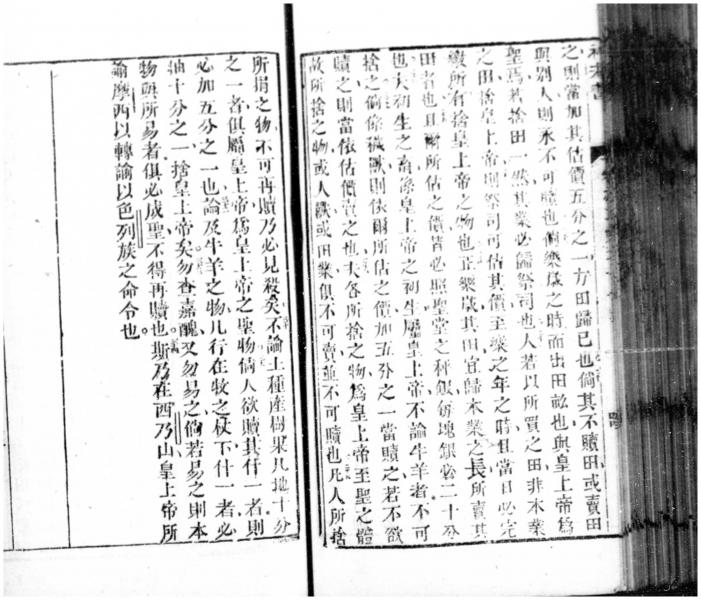 之則當加其估價五分之一方田歸己也倘其不贖田或賣田
與別人則永不可贖也倘樂歲之時而出田訟也與皇上帝爲
聖焉若捨田一然其業必歸祭司也人若以所買之田非本業
之田捨皇上帝則祭司可估其價至樂之年之時且當日必完
繳所有捨皇上帝之物也正樂歲其田宜歸本業之長所賣其
田者也且爾所估之價皆必照聖堂之秤銀每塊銀必二十分
也夫初生之畜係皇上帝之初生屬皇上帝不論牛羊者不可
捨之倘係穢獸則依爾所估之價加五分之一當贖之若不欲
贖之則當依估價賣之也夫各所捨之物爲皇上帝至聖之體
故所捨之物或人獸或田業俱不可賣並不可贖也凡人所捨
所捐之物不可再贖乃必見殺矣不論土種產樹果凡地十分
之一者俱屬皇上帝爲皇上帝之聖物倘人欲贖其什一者則
必加五分之一也論及牛羊之物凡行在牧之杖下什一者必
抽十分之一捨皇上帝矣勿查嘉醜又勿易之倘若易之則本
物與所易者俱必成聖不得再贖也斯乃在西乃山皇上帝所
諭摩西以轉諭以色列族之命令也